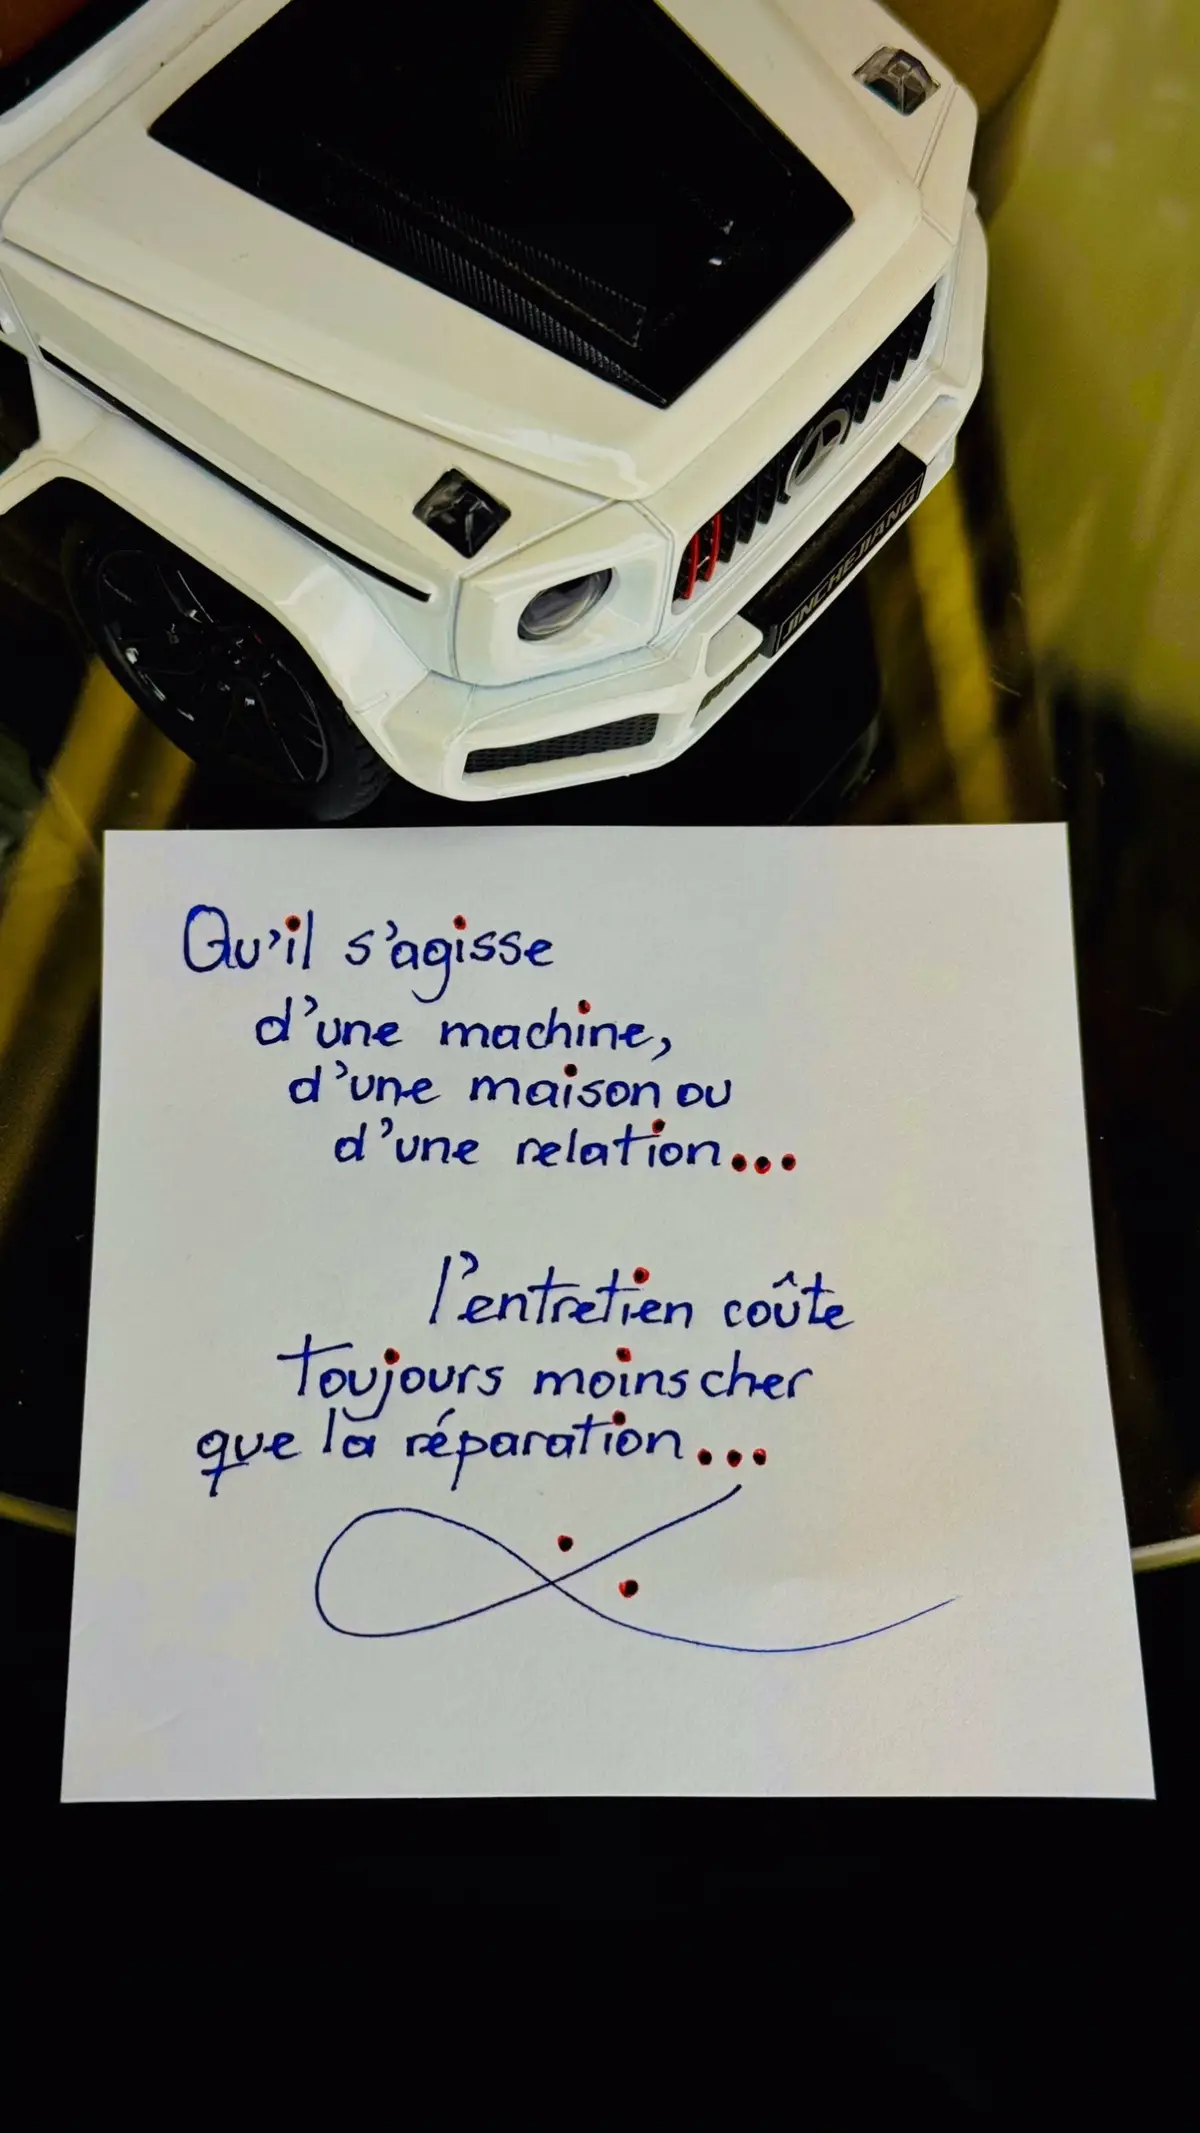 JINCHEJIANG
Qu'il s'agisse
d'une machine,
d'une maison ou
d'une relation...
l'entretien coûte
toujours moins cher
que la réparation...